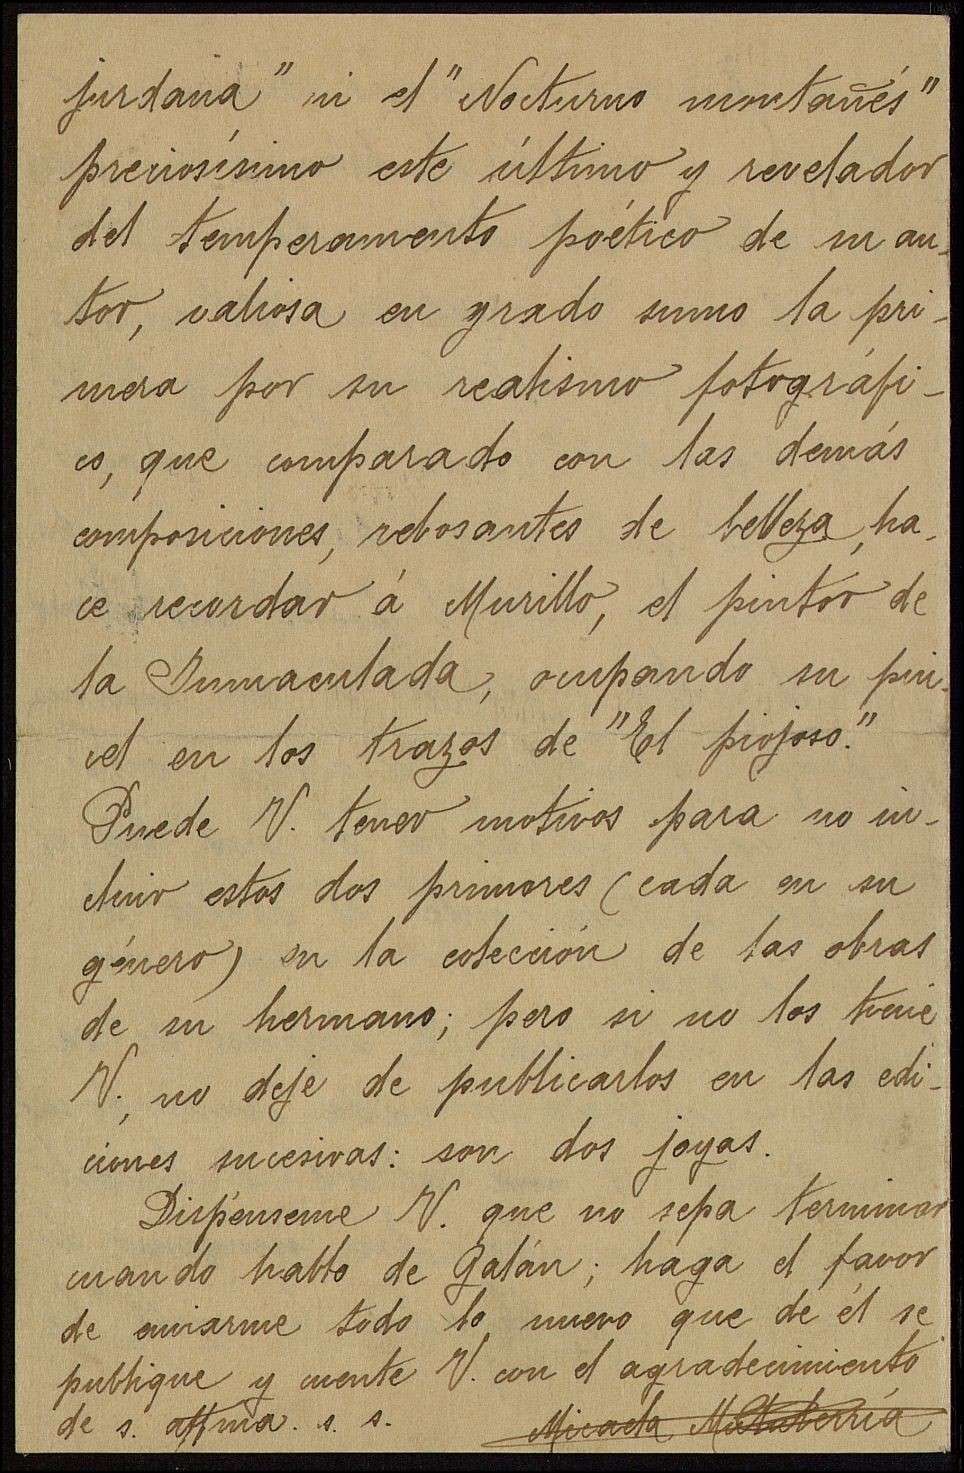 jurdana" ni el "Nocturno montañés"
preciosísimo este último y revelador
del temperamento poético de su au-
tor, valiosa en grado sumo la pri-
mera por su realismo fotográfi-
co, que comparado con las demás
composiciones, rebosantes de belleza, ha-
ce recordar á Murillo, el pintor de
la Inmaculada, ocupando su pin-
cel en los trazos de "El piojoso."
Puede V. tener motivos para no in-
cluir estos dos primores (cada en su
género) en la colección de las obras
de su hermano; pero si no los tiene
V., no deje de publicarlos en las edi-
ciones sucesivas: son dos joyas.
Dispénseme V. que no sepa terminar
cuando hablo de Galán; haga el favor
de enviarme todo lo nuevo que de él se
publique y cuente V. con el agradecimiento
de s. affma. s. s. Micaela